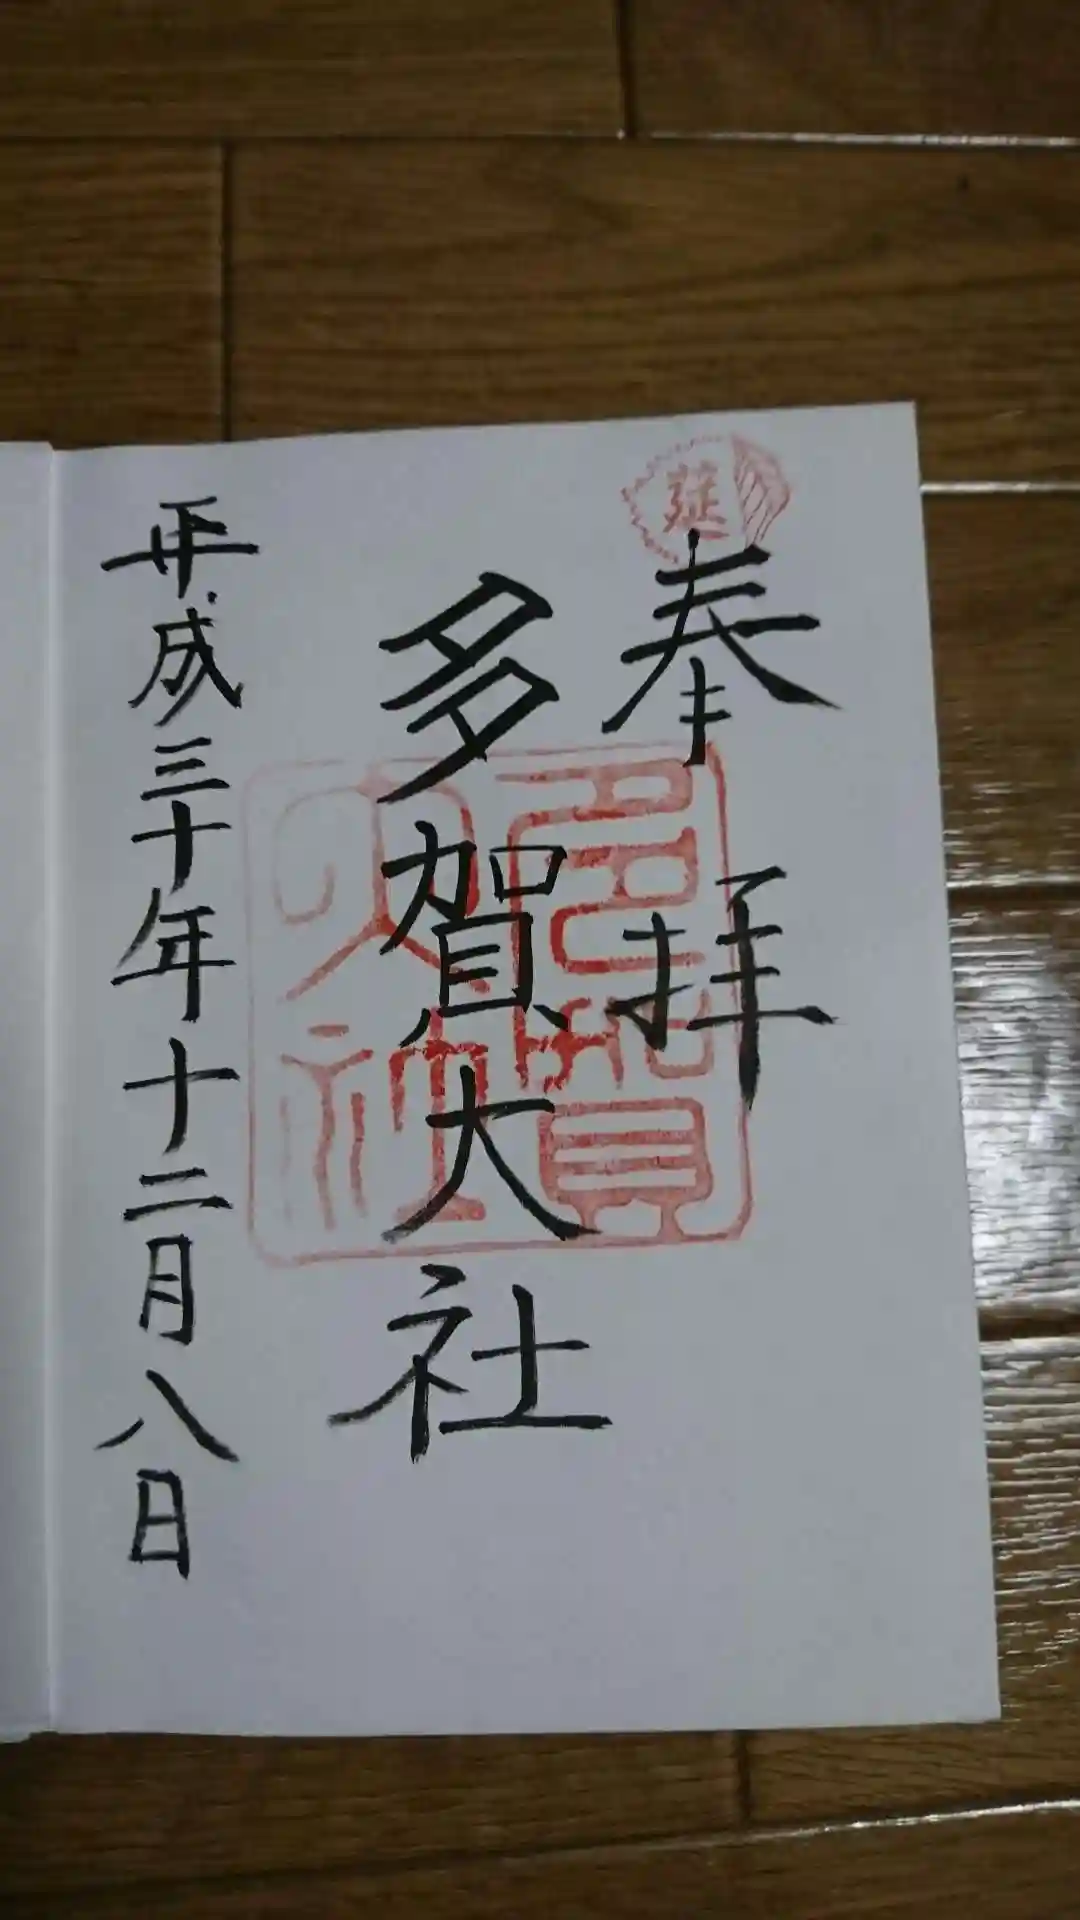 莚
奉拝
多賀大社
多賀大社
平成三十年十二月八日